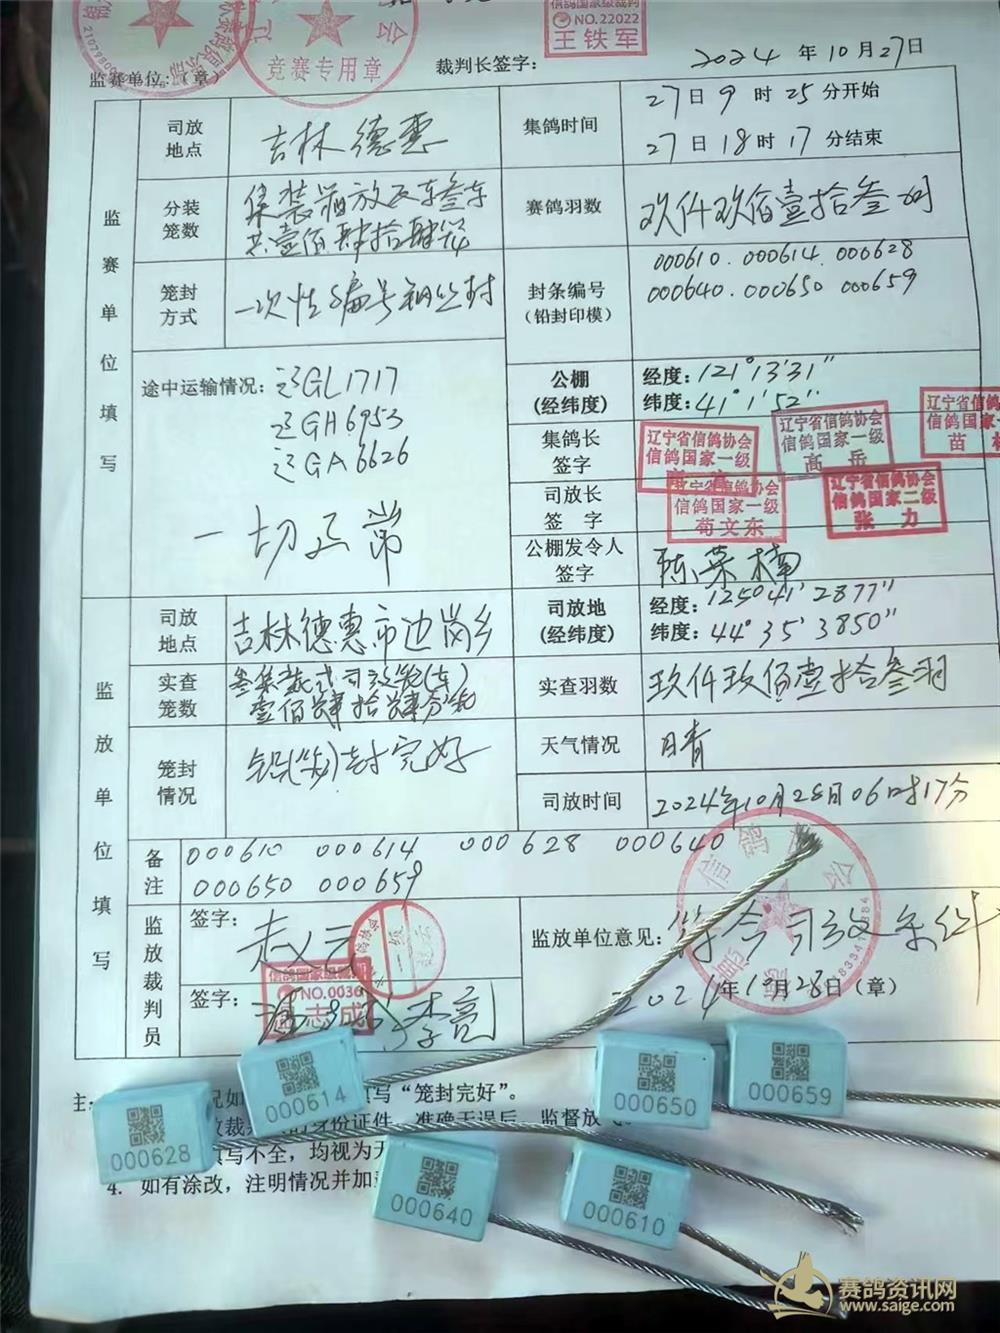 竞赛专用章
信鸽国家级裁判
NO.22022
王铁军
监赛单位:（章）
裁判长签字:
2024年10月27日
监赛单位填写
司放地点
吉林德惠
集鸽时间
27日9时25分开始
27日18时17分结束
分装笼数
集装箱放飞车叁车
共壹佰肆拾肆笼
赛鸽羽数
玖仟玖佰壹拾叁羽
笼封方式
一次性编号钢丝封
封条编号
(铅封印模)
000610.000614.000628
000640.000650 000659
途中运输情况:
辽GL1717
辽GH6953
辽GA6626
一切正常
公棚
(经纬度)
经度:121°13'31"
纬度:41°1'52"
集鸽长
签字
辽宁省信鸽协会
信鸽国家一级
辽宁省信鸽协会
信鸽国家一级
高岳
辽宁省信鸽协会
信鸽国家一
苗
司放长
签字
辽宁省信鸽协会
信鸽国家一级
苟文东
辽宁省信鸽协会
信鸽国家二级
张力
公棚发令人
签字
陈荣楠
监放单位填写
司放地点
吉林德惠市边岗乡
司放地
(经纬度)
经度:125°41'2877"
纬度:44°35'3850"
实查笼数
叁集装式司放笼(车)
壹佰肆拾肆分笼
实查羽数
玖仟玖佰壹拾叁羽
笼封情况
铅(签)封完好
天气情况
晴
司放时间
2024年10月28日06时17分
备注
000610 000614 000628 000640
000650 000659
监放裁判员
签字:
信鸽国家级裁判
NO.0036
志成
签字:
李亮
监放单位意见:
符合司放条件
2024年10月28日（章）
填写“笼封完好”。
身份证件，准确无误后，监督放
填写不全，均视为无
4. 如有涂改，注明情况并加
000628
000614
000650
000659
000640
000610
赛鸽资讯网
www.saige.com